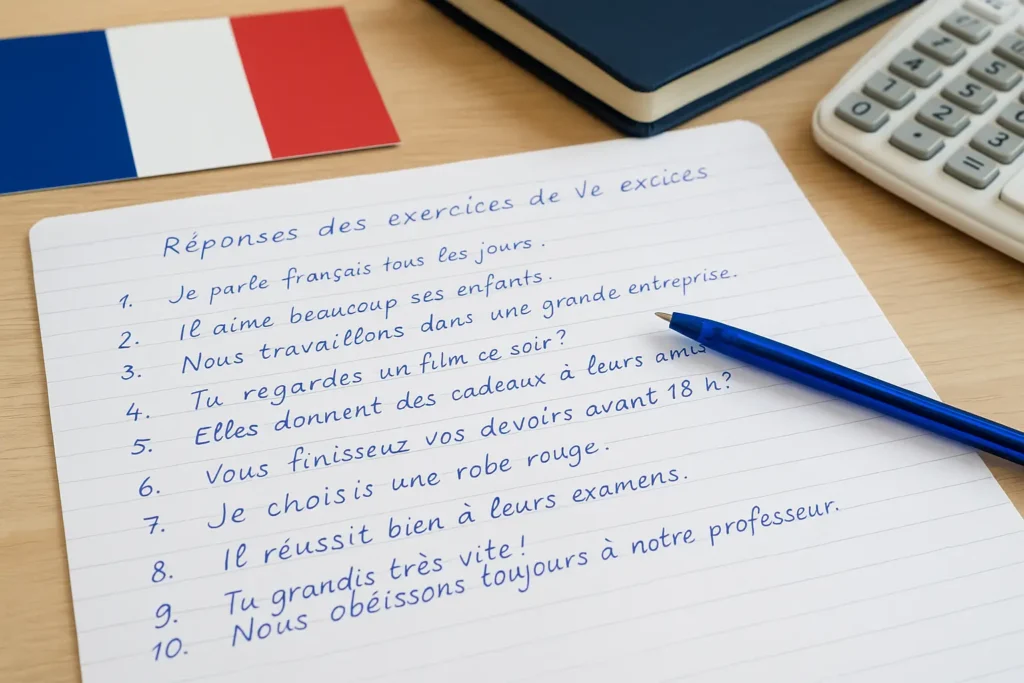 Réponses des exercices de Ve excices
1. Je parle français tous les jours.
2. Il aime beaucoup ses enfants.
3. Nous travaillons dans une grande entreprise.
4. Tu regardes un film ce soir?
5. Elles donnent des cadeaux à leurs amis
6. Vous finisseuz vos devoirs avant 18 h?
7. Je choisis une robe rouge.
8. Il réussit bien à leurs examens.
9. Tu grandis très vite!
10. Nous obéissons toujours à notre professeur.
7
A 5
7 5
0 2
. 3
=